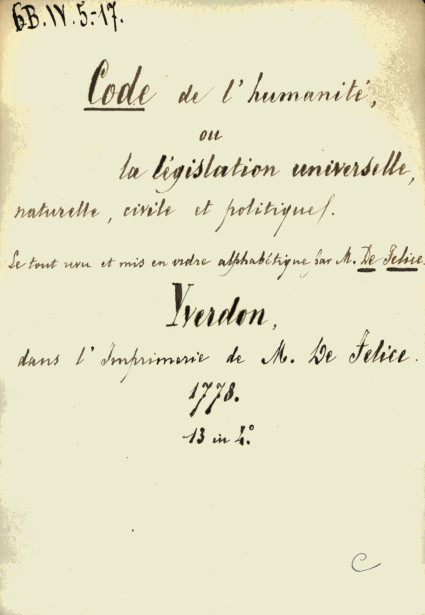 6B.IV.5.-17.
Code de l'humanité,
ou
la législation universelle,
naturelle, civile et politique.
Le tout revu et mis en ordre alphabétique par M. De Felice.
Yverdon,
dans l'Imprimerie de M. De Felice.
1778.
13 in 4.°
C